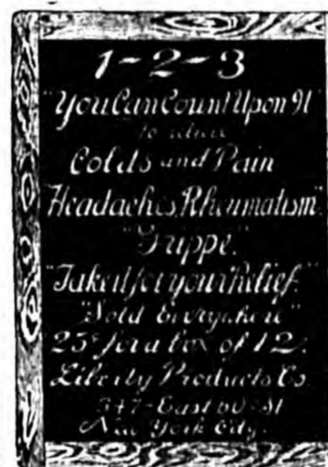 1-2-3
"You Can Count Upon It"
to relieve
Colds and Pain
Headaches, Rheumatism"
"Grippe"
"Take it for your Relief."
"Sold Everywhere"
25¢ for a box of 12.
Liberty Products Co.
347-East 60-St
New York City.